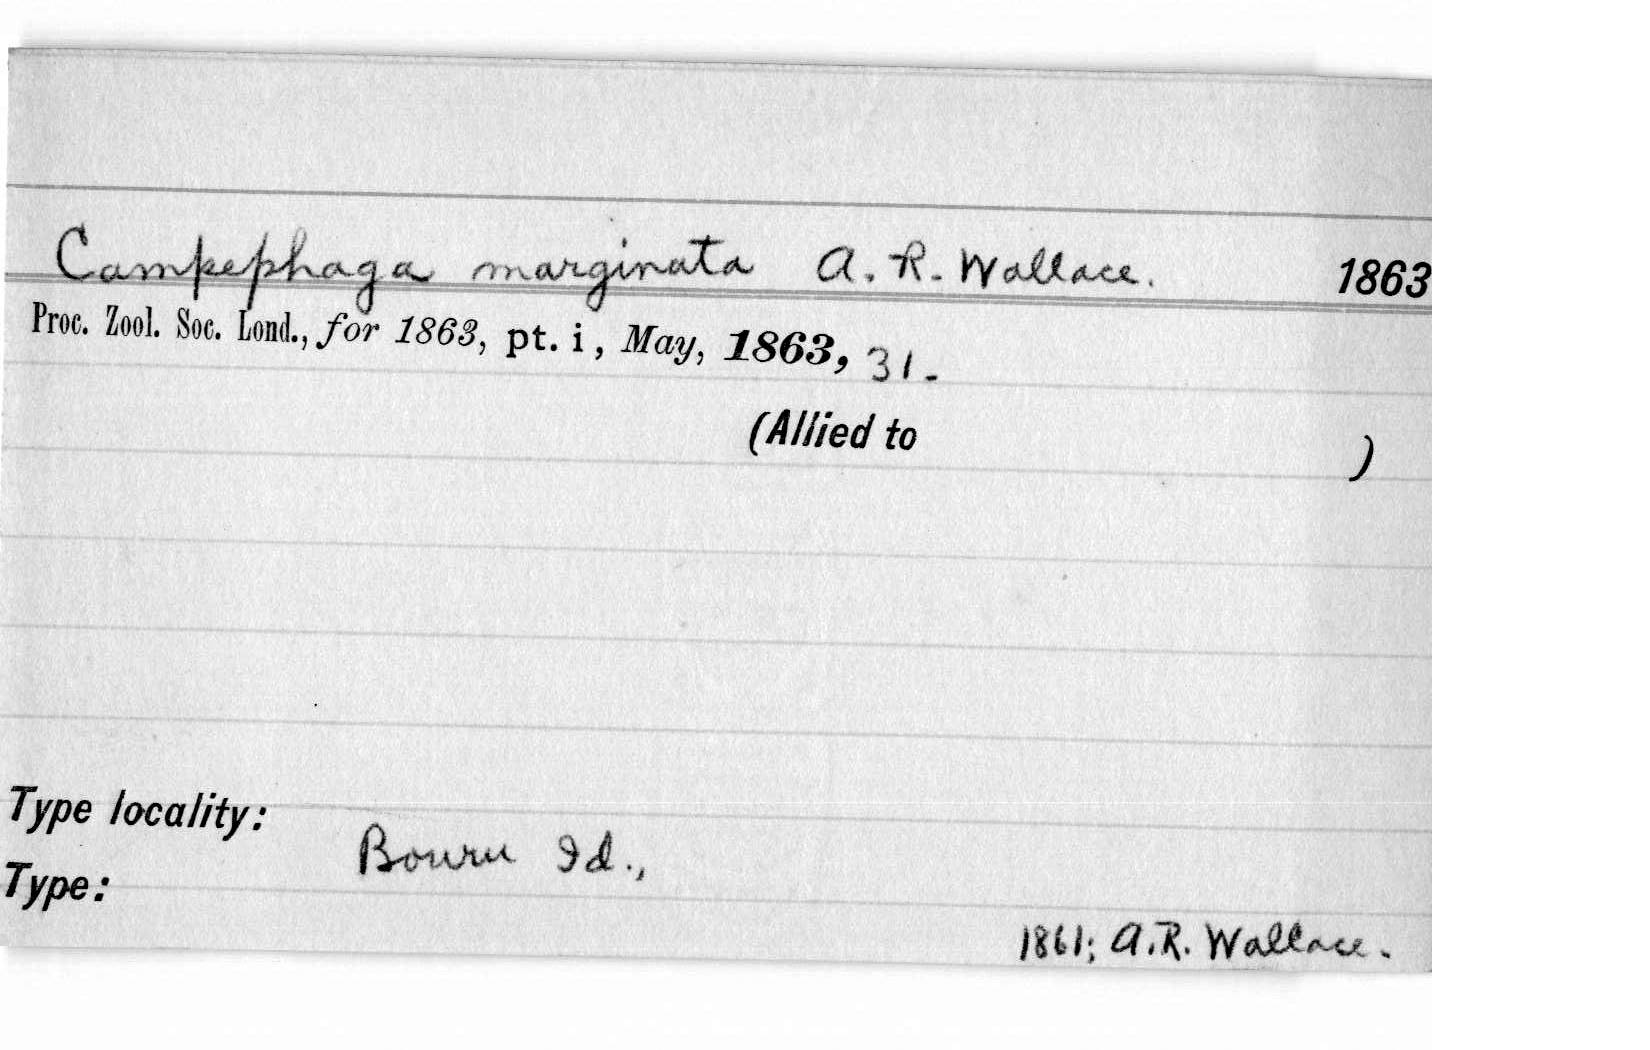 Campephaga marginata A. R. Wallace. 1863
Proc. Zool. Soc. Lond., for 1863, pt. i, May, 1863, 31.
(Allied to )
Type locality:
Bouru Id.,
Type:
1861; A.R. Wallace.